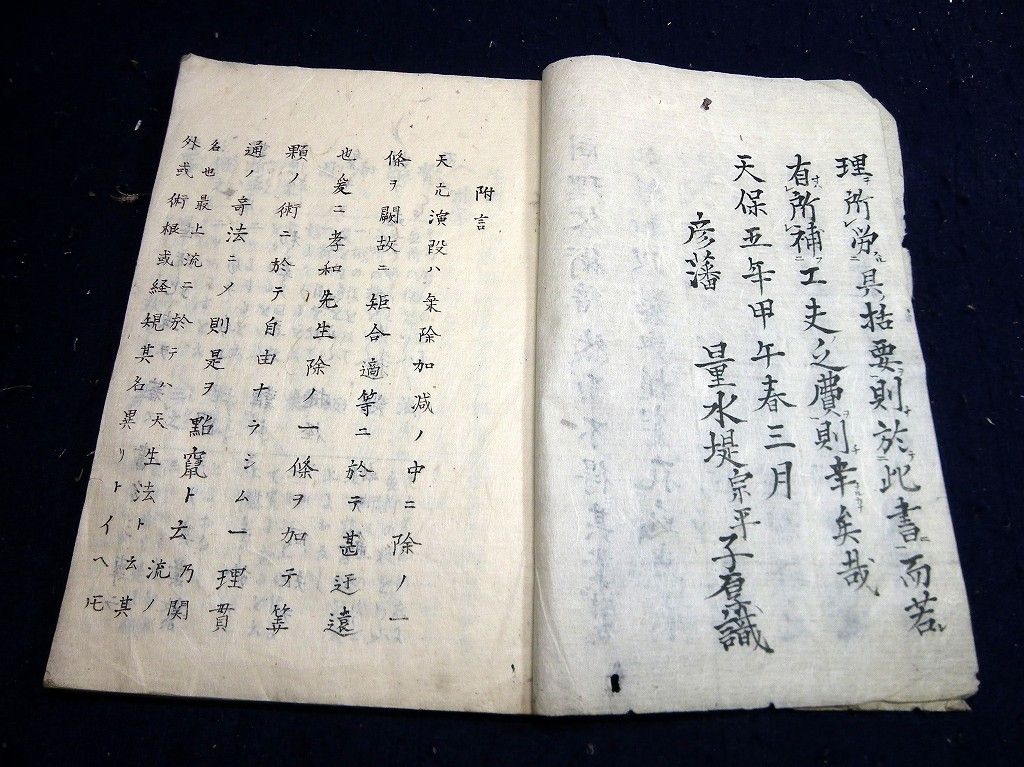 理所労具括要則於此書而若
有所補工夫之費則幸矣哉
天保五年甲午春三月
彦藩 量水堤宗平子原識
附言
天元演段ハ乗除加減ノ中ニ除ノ一
條ヲ闕故ニ矩合適等ニ於テ甚迂遠
也爰ニ孝和先生除ノ一條ヲ加テ筭
顆ノ術ニ於テ自由ナラシム一理貫
通ノ奇法ニメ則是ヲ點竄ト云乃関流ノ
名也最上流ニ於テハ天生法ト云其
外或術根或経規其名異リトイヘ𪜈